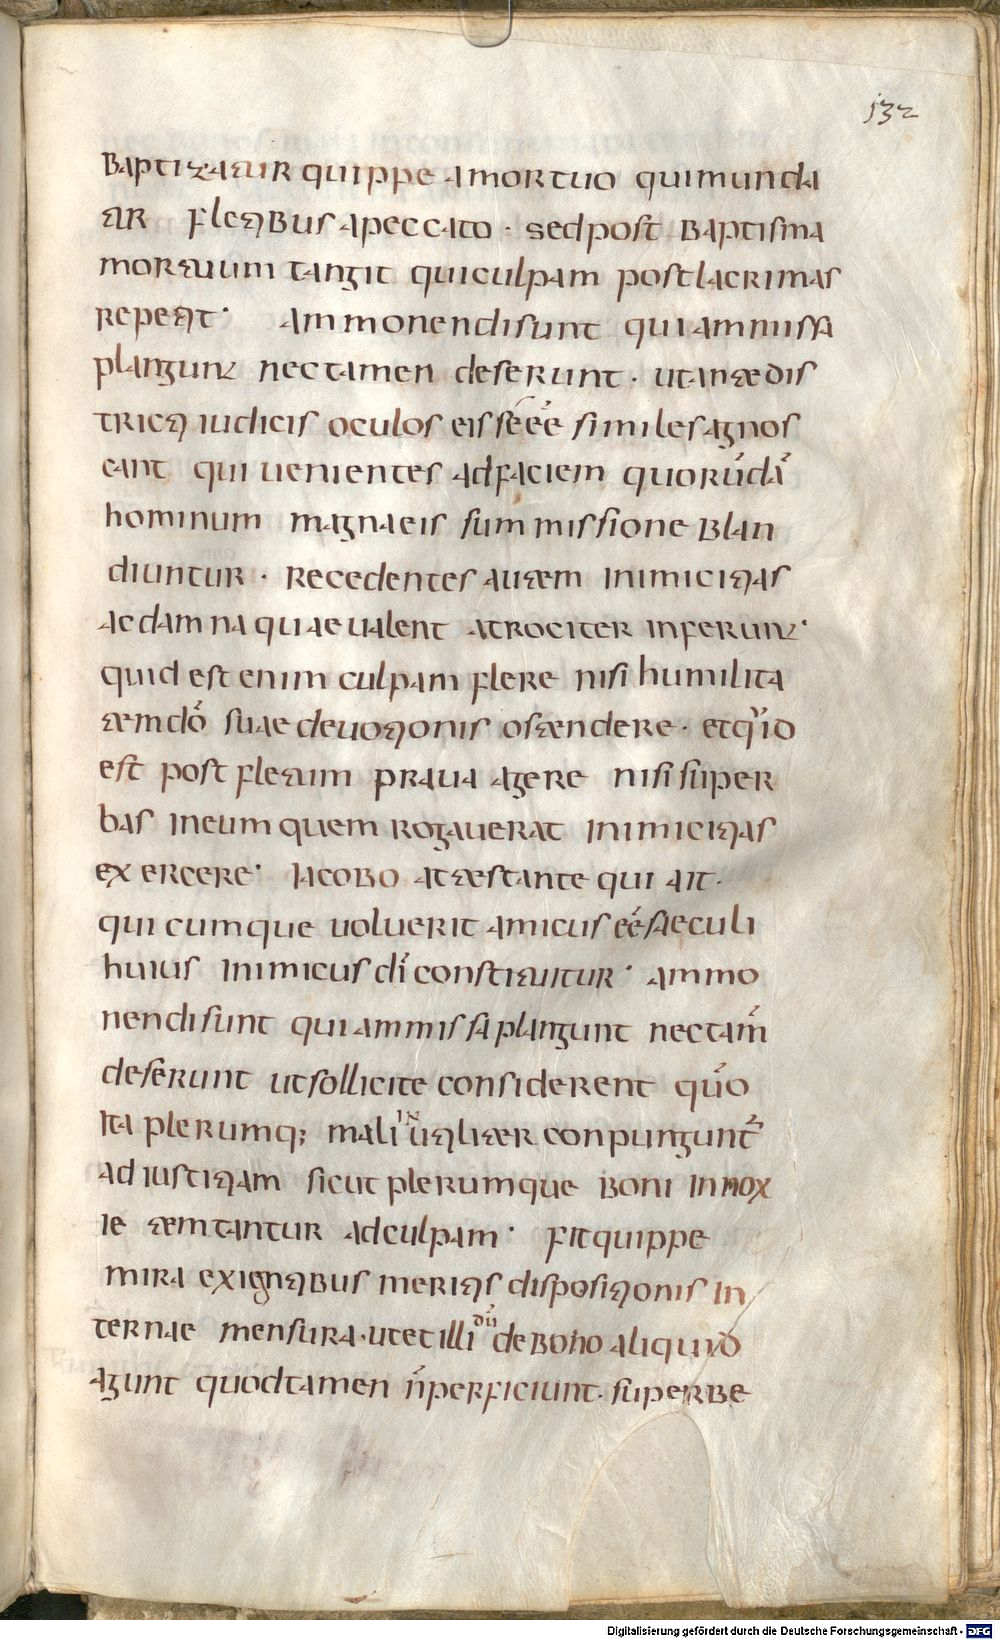 132
Baptizatur quippe a mortuo qui munda
tur fletibus a peccato · sed post baptisma
mortuum tangit qui culpam post lacrimas
repetit · Ammonendi sunt qui ammissa
plangunt nec tamen deserunt · ut ante dis
tricti iudicis oculos eis se éé similes agnos
cant qui uenientes ad faciem quorūdā
hominum magna eis summissione blan
diuntur · Recedentes autem inimicitias
ac damna quae ualent atrociter inferunt ·
quid est enim culpam flere nisi humilita
tem dō suae deuotionis ostendere · et quid
est post fletum praua agere nisi super
bas in eum quem rogauerat inimicitias
exercere · Iacobo attestante qui ait ·
qui cumque uoluerit amicus éé saeculi
huius inimicus dī constituitur · Ammo
nendi sunt qui ammissa plangunt nec tam̄
deserunt ut sollicite considerent quō
ita plerumq; mali inutiliter conpungunt̄
ad iustitiam sicut plerumque boni innox
ie temtantur ad culpam · Fit quippe
mira exigentibus meritis dispositionis in
ternae mensura · ut et illi dū de bono aliquid
agunt quod tamen n̄ perficiunt · superbe
Digitalisierung gefördert durch die Deutsche Forschungsgemeinschaft - DFG